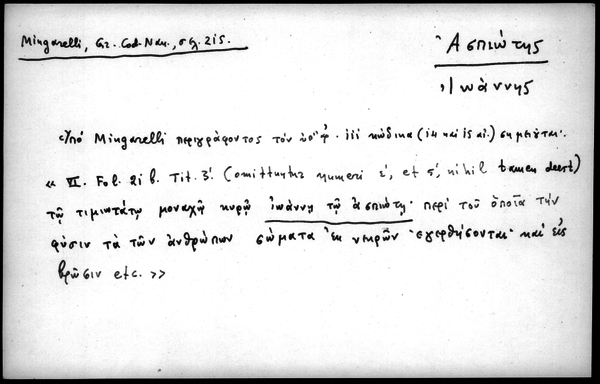 Mingarelli, Gr. Cod. Nan., σελ. 215.
Ἀσπιώτης
Ἰωάννης
Ὑπό Mingarelli περιγράφοντος τόν ὑπ' ἀρ. 111 κώδικα (14 καί 15 αἰ.) σημειοῦται·
« VI. Fol. 21 b. Tit. 3'. (omittuntur numeri ε', et ς', nihil tamen deest)
τῷ τιμιωτάτῳ μοναχῷ κυρῷ ἰωάννῃ τῷ ἀσπιώτῃ· περί τοῦ ὁποῖα τήν
φύσιν τὰ τῶν ἀνθρώπων σώματα ἐκ νεκρῶν ἐγερθήσονται· καί εἰς
βρῶσιν etc. »